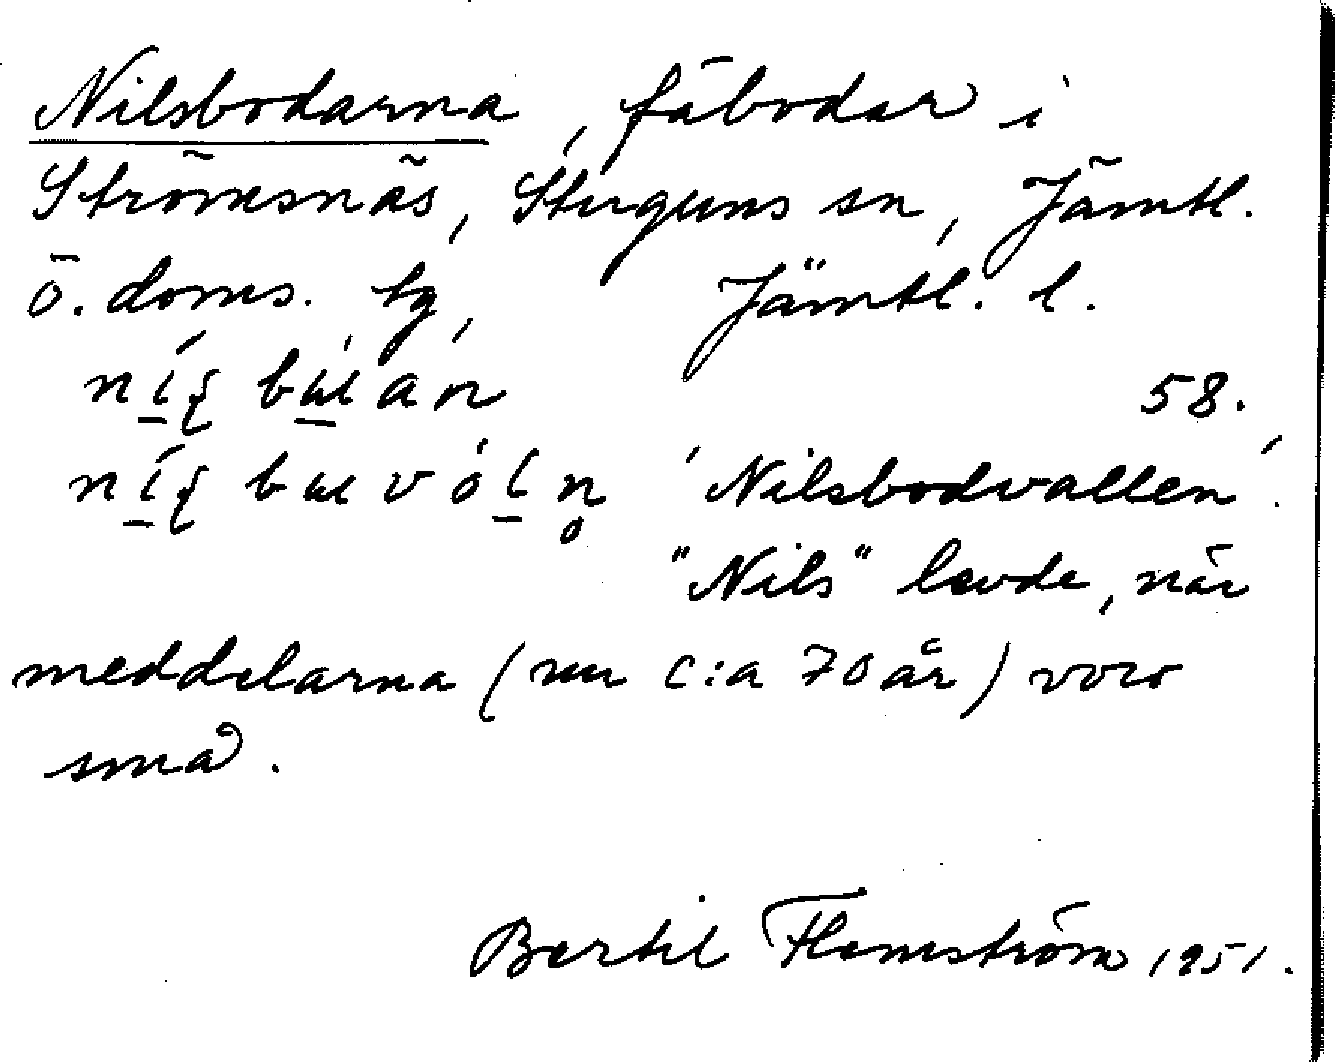 Nilsbodarna, fäbodar i
Strömsnäs, Stuguns sn, Jämtl.
ö. doms. tg, Jämtl. l.
58.
'Nilsbodvallen'.
"Nils" levde, när
meddelarna (nu c:a 70 år) voro
små.
Bertil Flemström 1951.